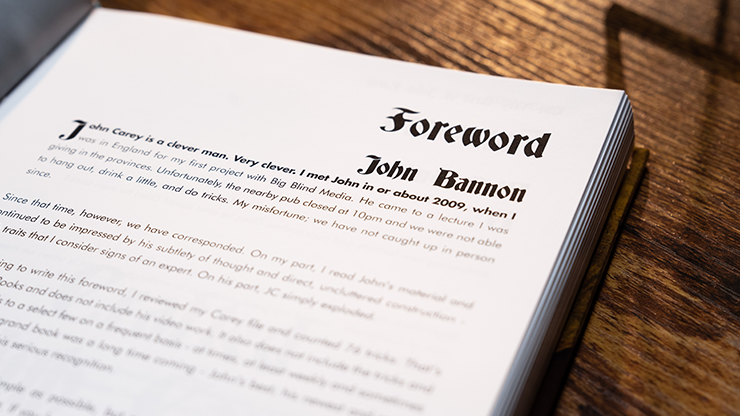 Foreword
John Bannon
John Carey is a clever man. Very clever. I met John in or about 2009, when I
was in England for my first project with Big Blind Media. He came to a lecture I was
giving in the provinces. Unfortunately, the nearby pub closed at 10pm and we were not able
to hang out, drink a little, and do tricks. My misfortune; we have not caught up in person
since.
Since that time, however, we have corresponded. On my part, I read John's material and
ontinued to be impressed by his subtlety of thought and direct, uncluttered construction -
traits that I consider signs of an expert. On his part, JC simply exploded.
ing to write this foreword, I reviewed my Carey file and counted 74 tricks. That's
Books and does not include his video work. It also does not include the tricks and
s to a select few on a frequent basis - at times, at least weekly and sometimes
grand book was a long time coming - John's best, his
is serious recognition.
mple as possible,